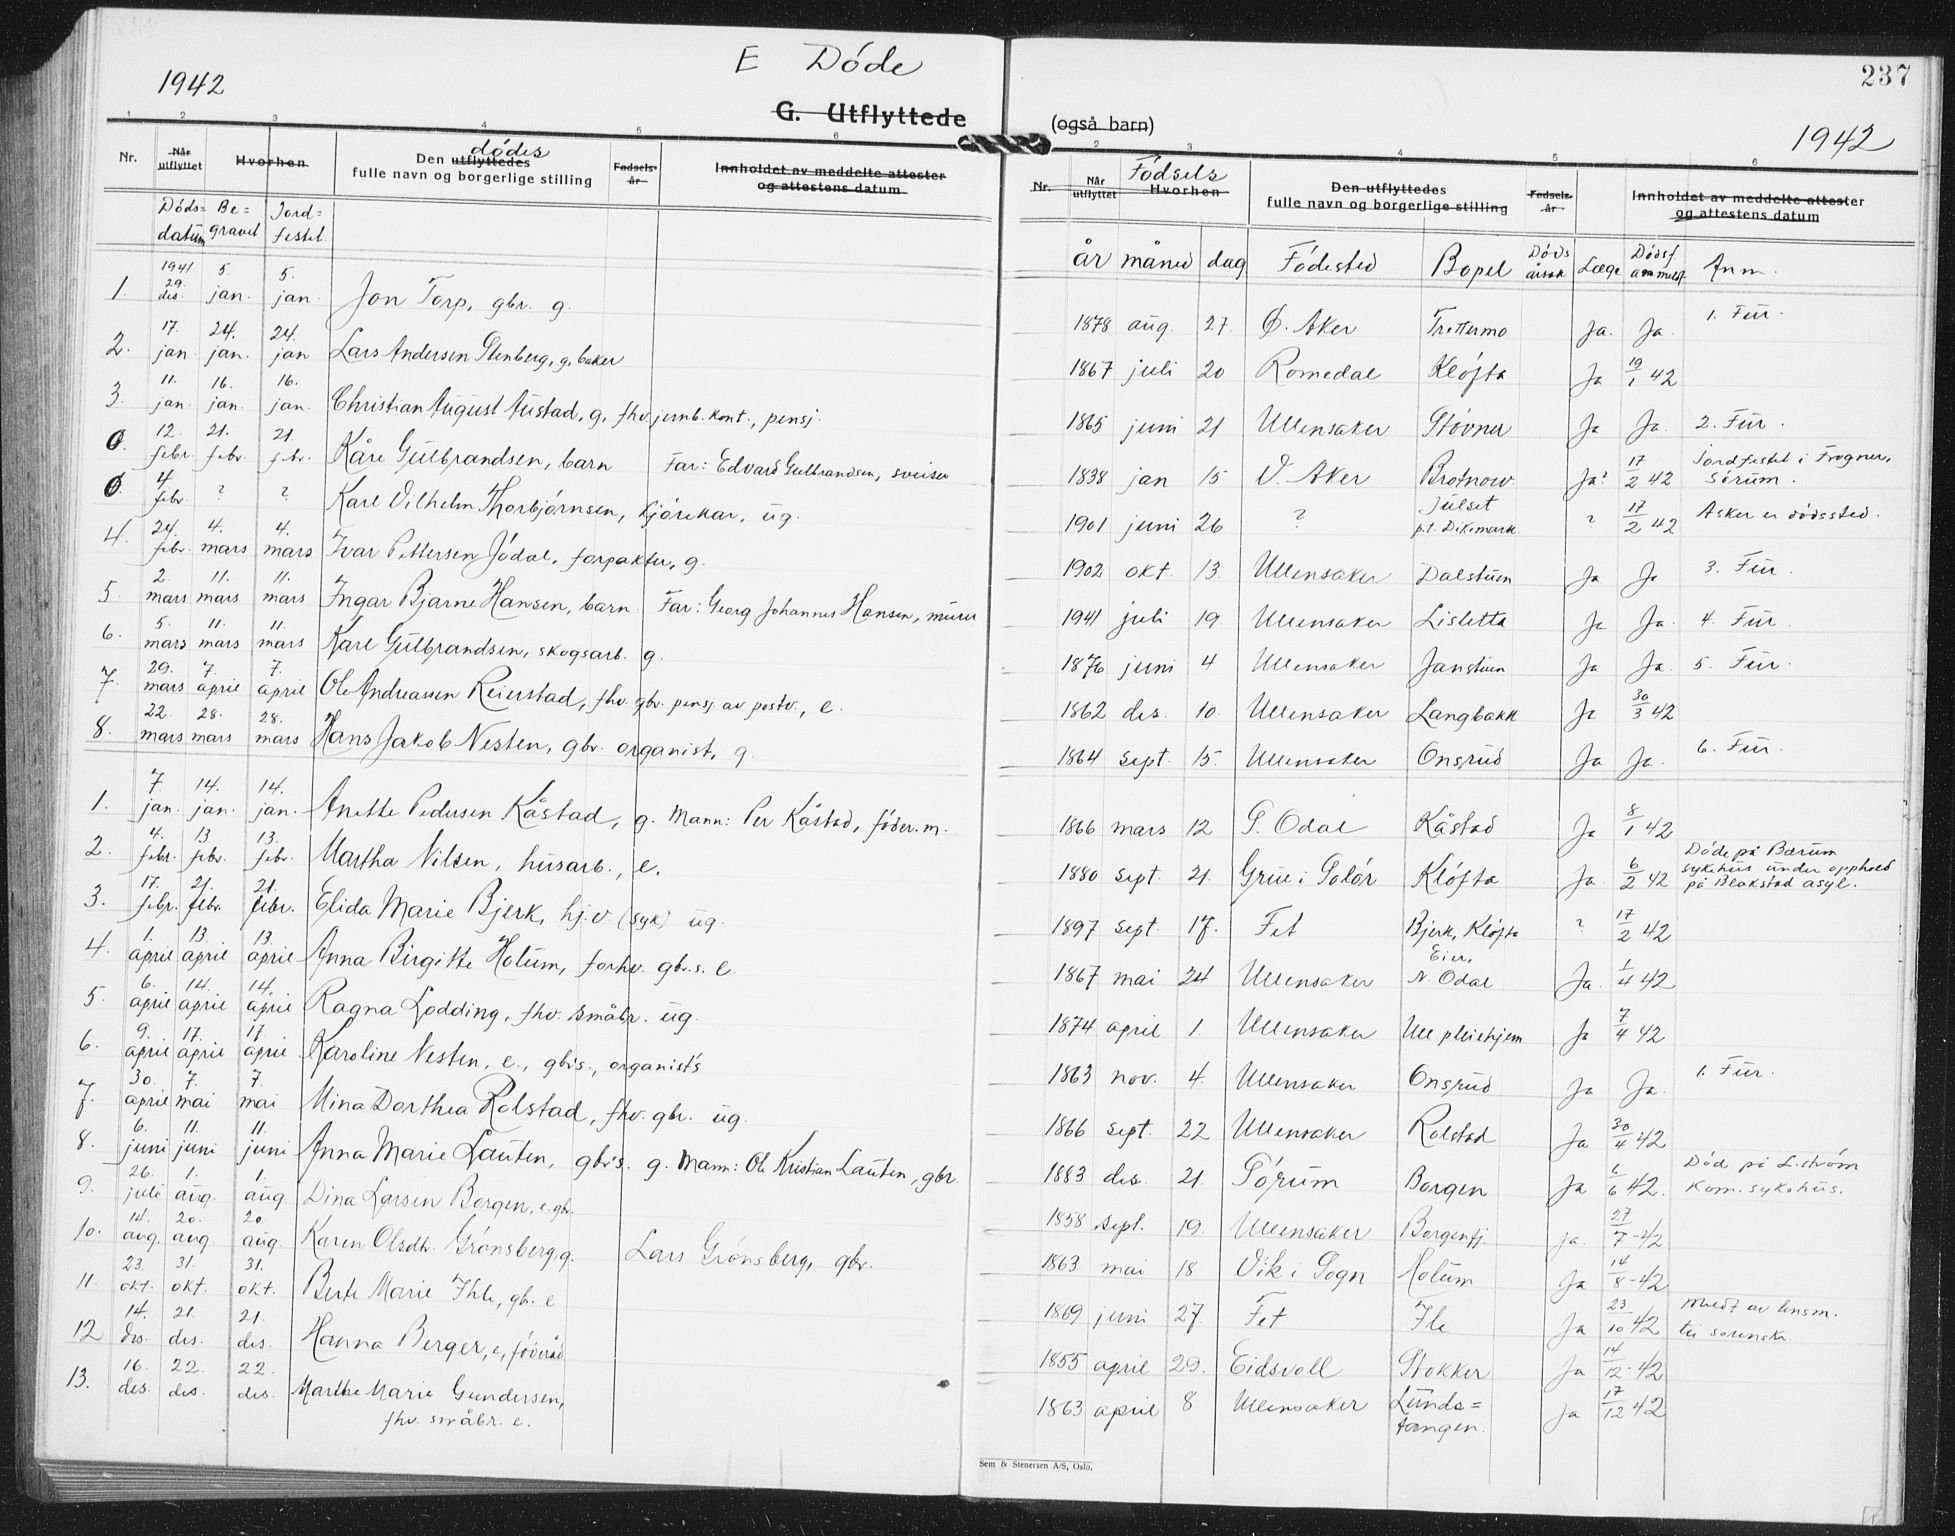 1942
E Døde
G. Utflyttede
Nr. Når utflyttet Hvorhen Den utflyttedes dødes fulle navn og borgerlige stilling Fødsels-år Innholdet av meddelte attester og attestens datum
Døds= datum Be= gravet Jord= festet
1. 1941 29. des. 5. jan. 5. jan. Jon Torp, gbr. g.
2. 17. jan. 24. jan. 24. jan Lars Andersen Stenberg, g, baker
3. 11. jan. 16. jan. 16. jan. Christian August Austad, g, fhv. jernb. kont., pensj.
0. 12. febr. 21. febr. 21. febr. Kåre Gulbrandsen, barn Far: Edvard Gulbrandsen, sveiser
0. 4 febr ? ? Karl Vilhelm Thorbjørnsen, kjørekar, ug.
4. 24. febr. 4. mars 4. mars Ivar Pettersen Jødal, forpakter, g.
5. 2. mars 11. mars 11. mars Ingar Bjarne Hansen, barn Far: Georg Johannes Hansen, murer
6. 5. mars 11. mars 11. mars Karl Gulbrandsen, skogsarb. g.
7. 29. mars 7. april 7. april Ole Andreassen Reierstad, fhv. gbr. pensj. av postv., e.
8. 22. mars 28. mars 28. mars Hans Jakob Nesten, gbr. organist, g.
1. 7. jan. 14. jan. 14. jan. Anette Pedersen Kåstad, g. Mann: Per Kåstad, føder. m.
2. 4. febr. 13 febr. 13. febr. Martha Nilsen, husarb., e.
3. 17. febr. 21. febr. 21. febr. Elida Marie Bjerk, hj.v. (syk) ug.
4. 1. april 13. april 13. april Anna Birgitte Holum, forhv. gbr.s. e.
5. 6. april 14. april 14. april Ragna Lodding, fhv. småbr. ug.
6. 9. april 17. april 17 april Karoline Nesten, e., gbr's., organist's
7. 30. april 7. mai 7. mai Mina Dorthea Rolstad, fhv. gbr. ug.
8. 6. juni 11. juni 11. juni Anna Marie Lauten, gbr's. g. Mann: Ole Kristian Lauten, gbr.
9. 26. juli 1. aug. 1. aug. Dina Larsen Borgen, e. gbr.
10. 14. aug. 20. aug. 20. aug. Karen Olsdtr. Grønsberg, g. Lars Grønsberg, gbr.
11. 23. okt. 31. okt. 31. okt. Berte Marie Ihle, gbr. e
12 14. des. 21. des. 21. des. Hanna Berger, e, føderåd
13. 16. des. 22. des. 22. des. Marthe Marie Gundersen,
fhv. småbr. e.
237
(også barn)
1942
Nr. Når utflyttet Fødsels Hvorhen Den utflyttedes fulle navn og borgerlige stilling Fødsels-år Innholdet av meddelte attester og attestens datum
år måned dag Fødested Bopel Døds årsak Læge Dødsf. anmeldt Anm.
1878 aug. 27. Ø. Aker Trettermo Ja. Ja. 1. Fur.
1867 juli 20 Romedal Kløfta Ja 19/1 42
1865 juni 21 Ullensaker Støvner Ja Ja. 2. Fur.
1838 jan 15 V. Aker Brotnow Ja? 17/2 42 Jordfestet i Frogner, Sørum.
1901 juni 26 ? Julset p.t. Dikemark ? 17/2 42 Asker er dødssted.
1902 okt. 13. Ullensaker Dalstuen Ja Ja 3. Fur.
1941 juli 19. Ullensaker Lisletta Ja Ja. 4. Fur.
1876 juni 4 Ullensaker Janstuen Ja Ja. 5. Fur.
1862 des. 10. Ullensaker Langbakk Ja 30/3 42
1864 sept. 15. Ullensaker Onsrud Ja Ja. 6. Fur.
1866 mars 12 S. Odal Kåstad Ja 8/1 42
1880 sept. 21. Grue i Solør Kløfta Ja. 6/2 42 Døde på Bærum sykehus under opphold på Blakstad asyl.
1897 sept. 17. Fet Bjerk, Kløfta ? 17/2 42
1867 mai 24 Ullensaker Eier, N. Odal Ja. 1/4 42
1874 april 1. Ullensaker Ull pleiehjem Ja 7/4 42
1863 nov. 4. Ullensaker Onsrud Ja Ja. 1. Fur.
1866 sept. 22 Ullensaker Rolstad Ja 30/4 42
1883 des. 21. Sørum Borgen Ja 6/6 42. Død på L.strøm Kom. sykehus.
1858 sept. 19. Ullensaker Borgenfj. ja. 27/7-42
1863 mai 18 Vik i Sogn Holum Ja 14/8-42
1869 juni 27. Fet Ile Ja 23/10 42 Medt av lensm. til sorenskr.
1855 april 29. Eidsvoll Stokker Ja 14/12-42
1863 april 8 Ullensaker Lunds= tangen. Ja 17/12 42
Sem & Stenersen A/S, Oslo.